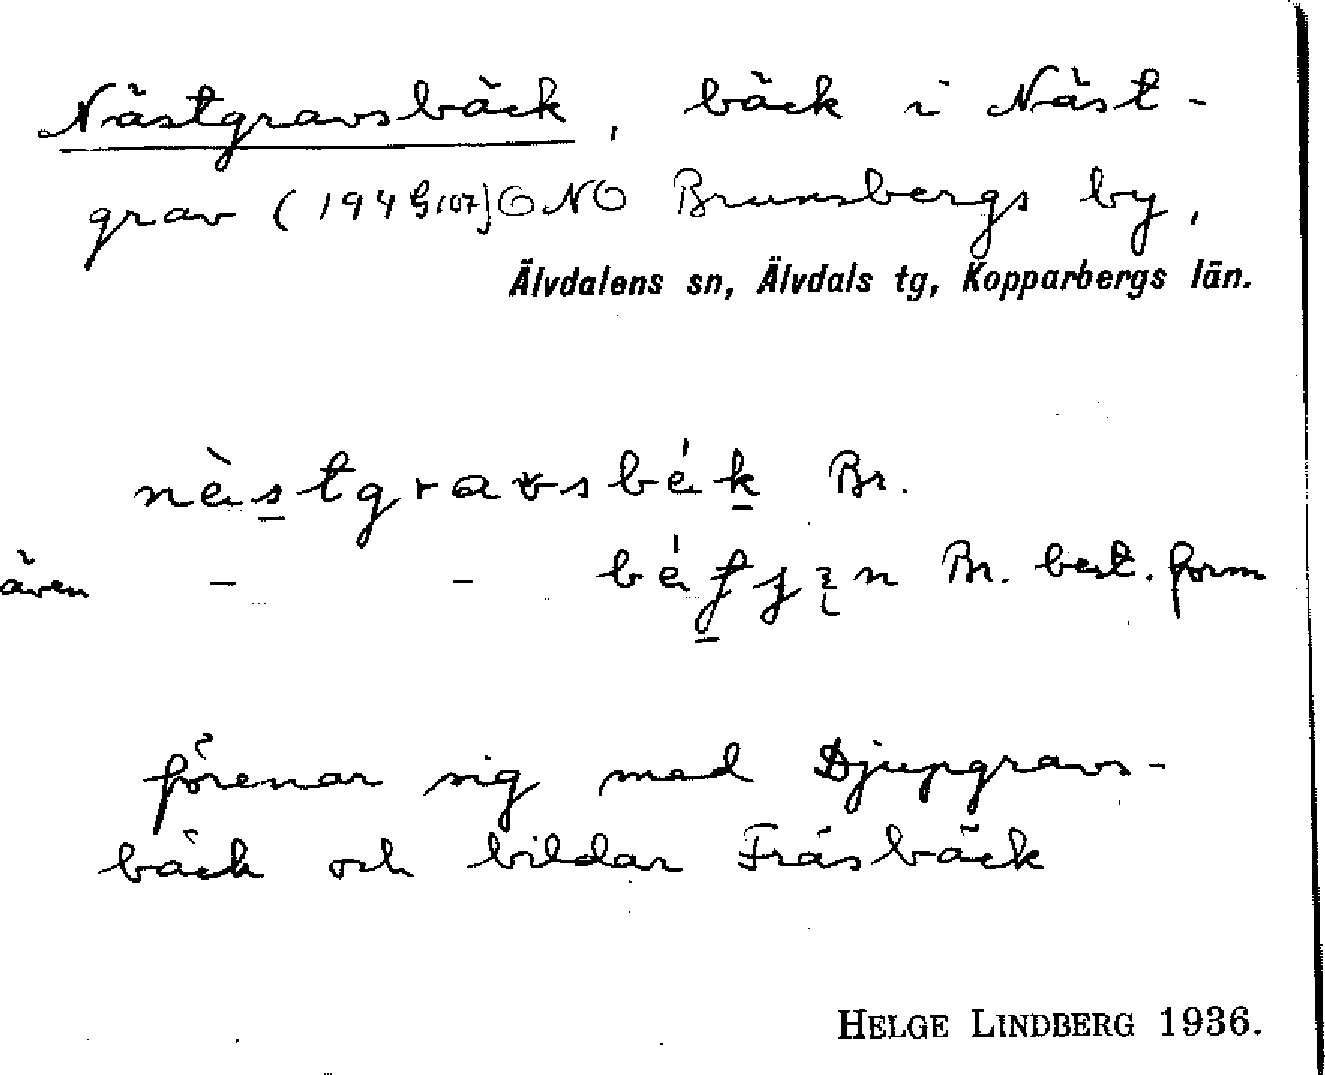 Nästgravsbäck, bäck i Näst-
grav (1949 107) ONO Brunsbergs by,
Älvdalens sn, Älvdals tg, Kopparbergs län.
nàstgravsbék Br.
även - - bén Br. best. form
förenar sig med Djupgravs-
bäck och bildar Fräsbäck
HELGE LINDBERG 1936.